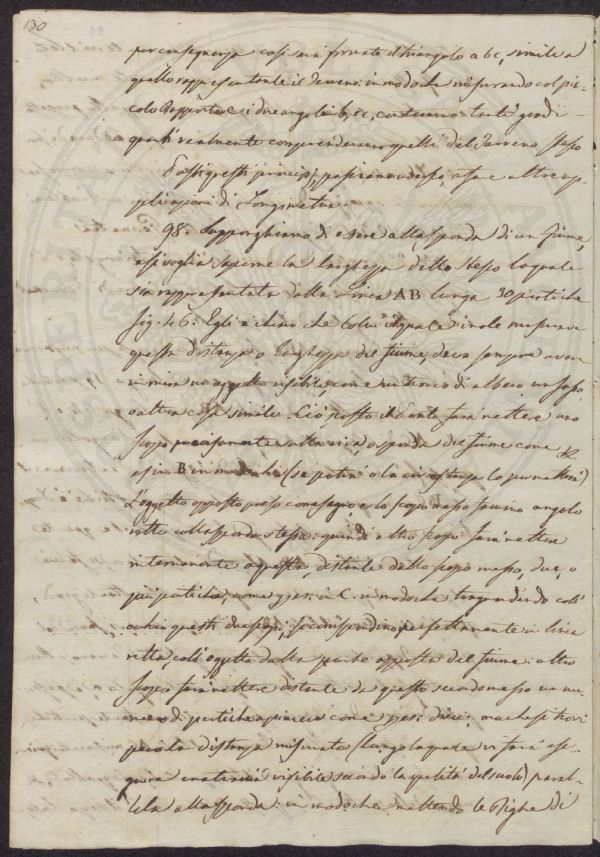 130
per conseguenza così sarà formato il triangolo abc, simile a
quello rappresentante il Terreno: in modo che misurando col pic-
colo Rapportatore i due angoli b, e c, conteranno tanti gradi
quanti realmente comprenderanno quelli del Terreno stesso
Posti questi principj, passiamo adesso, a fare altre ap-
plicazioni di Longimetria.
98. Supponghiamo di essere alla sponda di un fiume,
e si voglia saperne la larghezza dello stesso la quale
sia rappresentata dalla linea AB lunga 30 pertiche
fig. 46. Egli è chiaro che colui il quale vuole misurare
questa distanza o larghezza del fiume, deve sempre avere
in mira un oggetto visibile, come un tronco di albero un sasso
o altra cosa simile. Ciò posto farà mettere uno
scopo precisamente alla riva, o sponda del fiume come
è in B in modo che (se potrà o la circostanza lo permetterà)
l'oggetto opposto preso come segno e lo scopo messo facciano angolo
retto colla sponda stessa: quindi altro scopo farà mettere
internamente a questa, distante dallo scopo messo, due, o
più pertiche, come p. es: in C. in modo che traguardando coll'
occhio questi due scopi, si corrispondino perfettamente in linea
retta, coll'oggetto dalla parte opposta del fiume: altro
scopo farà mettere distante da questo secondo messo un nu-
mero di pertiche a piacere come p. es: dieci, ma che si trovi
per la distanza misurata (lungo la quale vi farà ese-
guire una traccia visibile secondo la qualità del suolo) paral-
lela alla sponda: in modo che mettendo le Righe di